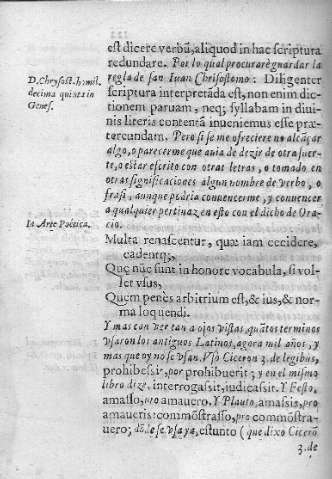 est dicere verbũ, aliquod in hac scriptura
redundare. Por lo qual procurarè guardar la
regla de san Iuan Chrisostomo: Diligenter
D. Chrysost. homil.
decima quinta in
Genes.
scriptura interpretãda est, non enim dic-
tionem paruam, neq; syllabam in diui-
nis literis contentã inueniemus esse præ-
tercundam. Pero si se me ofreciere no alcãçar
algo, o parecerme que auia de dezir de otra suer-
te, o estar escrito con otras letras, o tomado en
otras significaciones algun nombre de verbo, o
frasi, aunque podria conuencerme, y conuencer
a qualquier pertinaz en esto con el dicho de Ora-
cio.
In Arte Poëtica.
Multa renascentur, quæ iam cecidere,
cadentq;,
Que nũc sunt in honore vocabula, si vol-
let vsus,
Quem penès arbitrium est, & ius, & nor-
ma loquendi.
Y mas con ver tan a ojos vistas, quãtos terminos
vsaron los antiguos Latinos, agora mil años, y
mas que oy no se vsan. Vsò Ciceron 3. de legibus,
prohibessit, por prohibuerit; y en el mismo
libro dize, interrogassit, iudicassit. Y Festo,
amasso, pro amauero. Y Plauto, amassis, pro
amaueris: commõstrasso, pro commõstra-
uero; dõde se vsa ya, estunto (que dixo Cicerõ
3. de